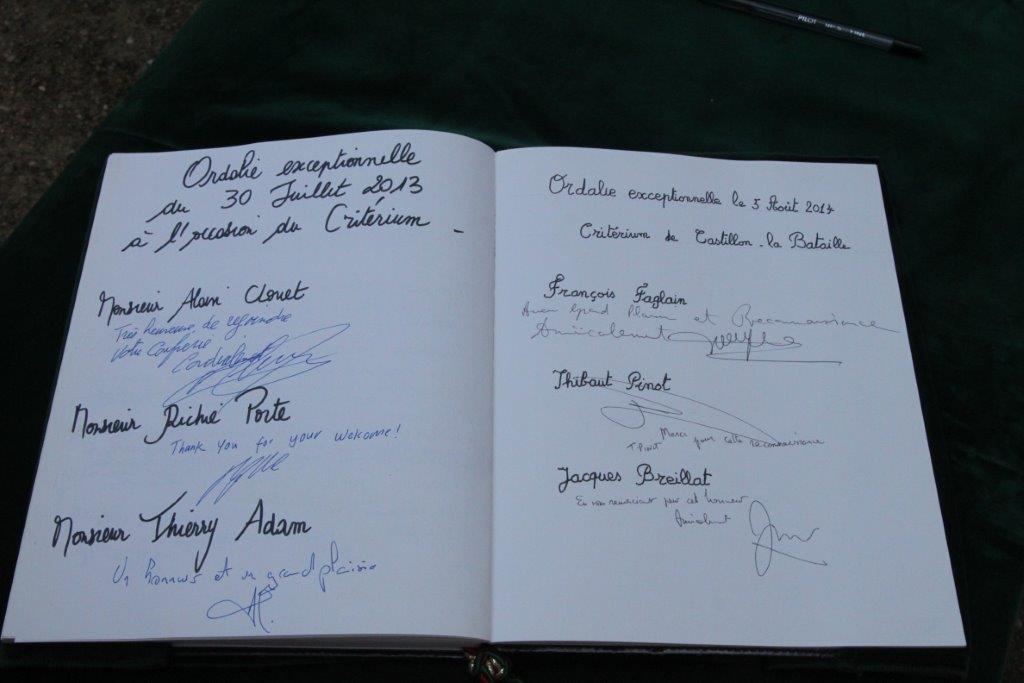 PILOT
Ordalie exceptionnelle
du 30 Juillet 2013
à l'occasion du Critérium
Monsieur Alain Clouet
Très heureuse de rejoindre
votre Confrérie
Cordialement
Monsieur Richie Porte
Thank you for your welcome!
Monsieur Thierry Adam
Un honneur et un grand plaisir
Ordalie exceptionnelle le 5 Août 2014
Critérium de Castillon-la Bataille
François Faglain
Avec Grand Plaisir et Reconnaissance
Amicalement
Thibaut Pinot
Merci pour cette reconnaissance
T. Pinot
Jacques Breillat
En vous remerciant pour cet honneur
Amicalement